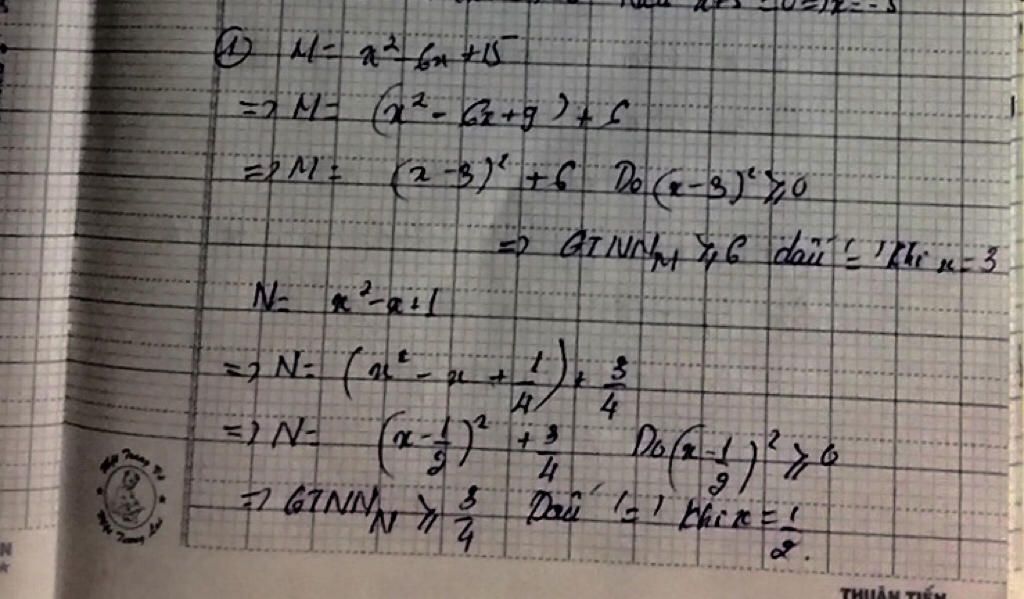 x+5 = 0 => x = -5
① M = x² - 6x + 15
=> M = (x² - 6x + 9) + 6
=> M = (x - 3)² + 6 Do (x - 3)² ≥ 0
=> GTNN_M ≥ 6 dấu '=' khi x = 3
N = x² - x + 1
=> N = (x² - x + 1/4) + 3/4
=> N = (x - 1/2)² + 3/4 Do (x - 1/2)² ≥ 0
=> GTNN_N ≥ 3/4 Dấu '=' khi x = 1/2.
THUẬN TIẾN